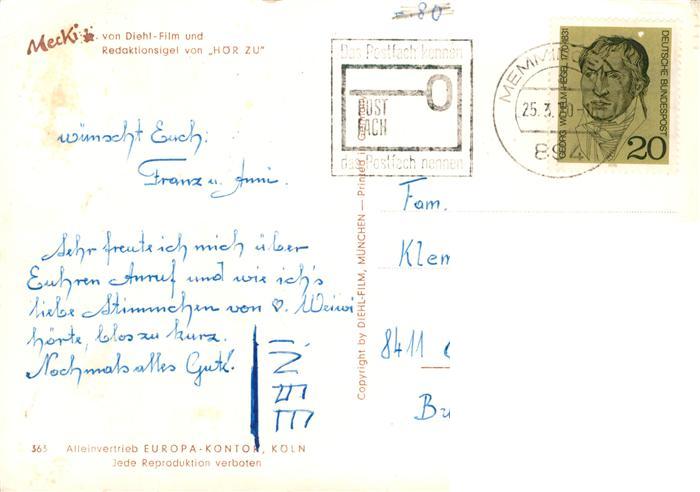 = 80
Mecki von Diehl-Film und
Redaktionsigel von „HÖR ZU"
Das Postfach kennen
POST
FACH
das Postfach nennen
MEMMI
25.3.
894
DEUTSCHE BUNDESPOST
GEORG WILHELM HEGEL 1770-1831
20
wünscht Euch.
Franz u. Anni.
Sehr freute ich mich über
Euhren Anruf und wie ich's
liebe Stimmchen von ♡. Weiwi
hörte, blos zu kurz.
Nochmals alles Gute!
Fam.
Klem
8411
Br
Copyright by DIEHL-FILM, MÜNCHEN — Printed in Germany
363 Alleinvertrieb EUROPA-KONTOR, KÖLN
Jede Reproduktion verboten